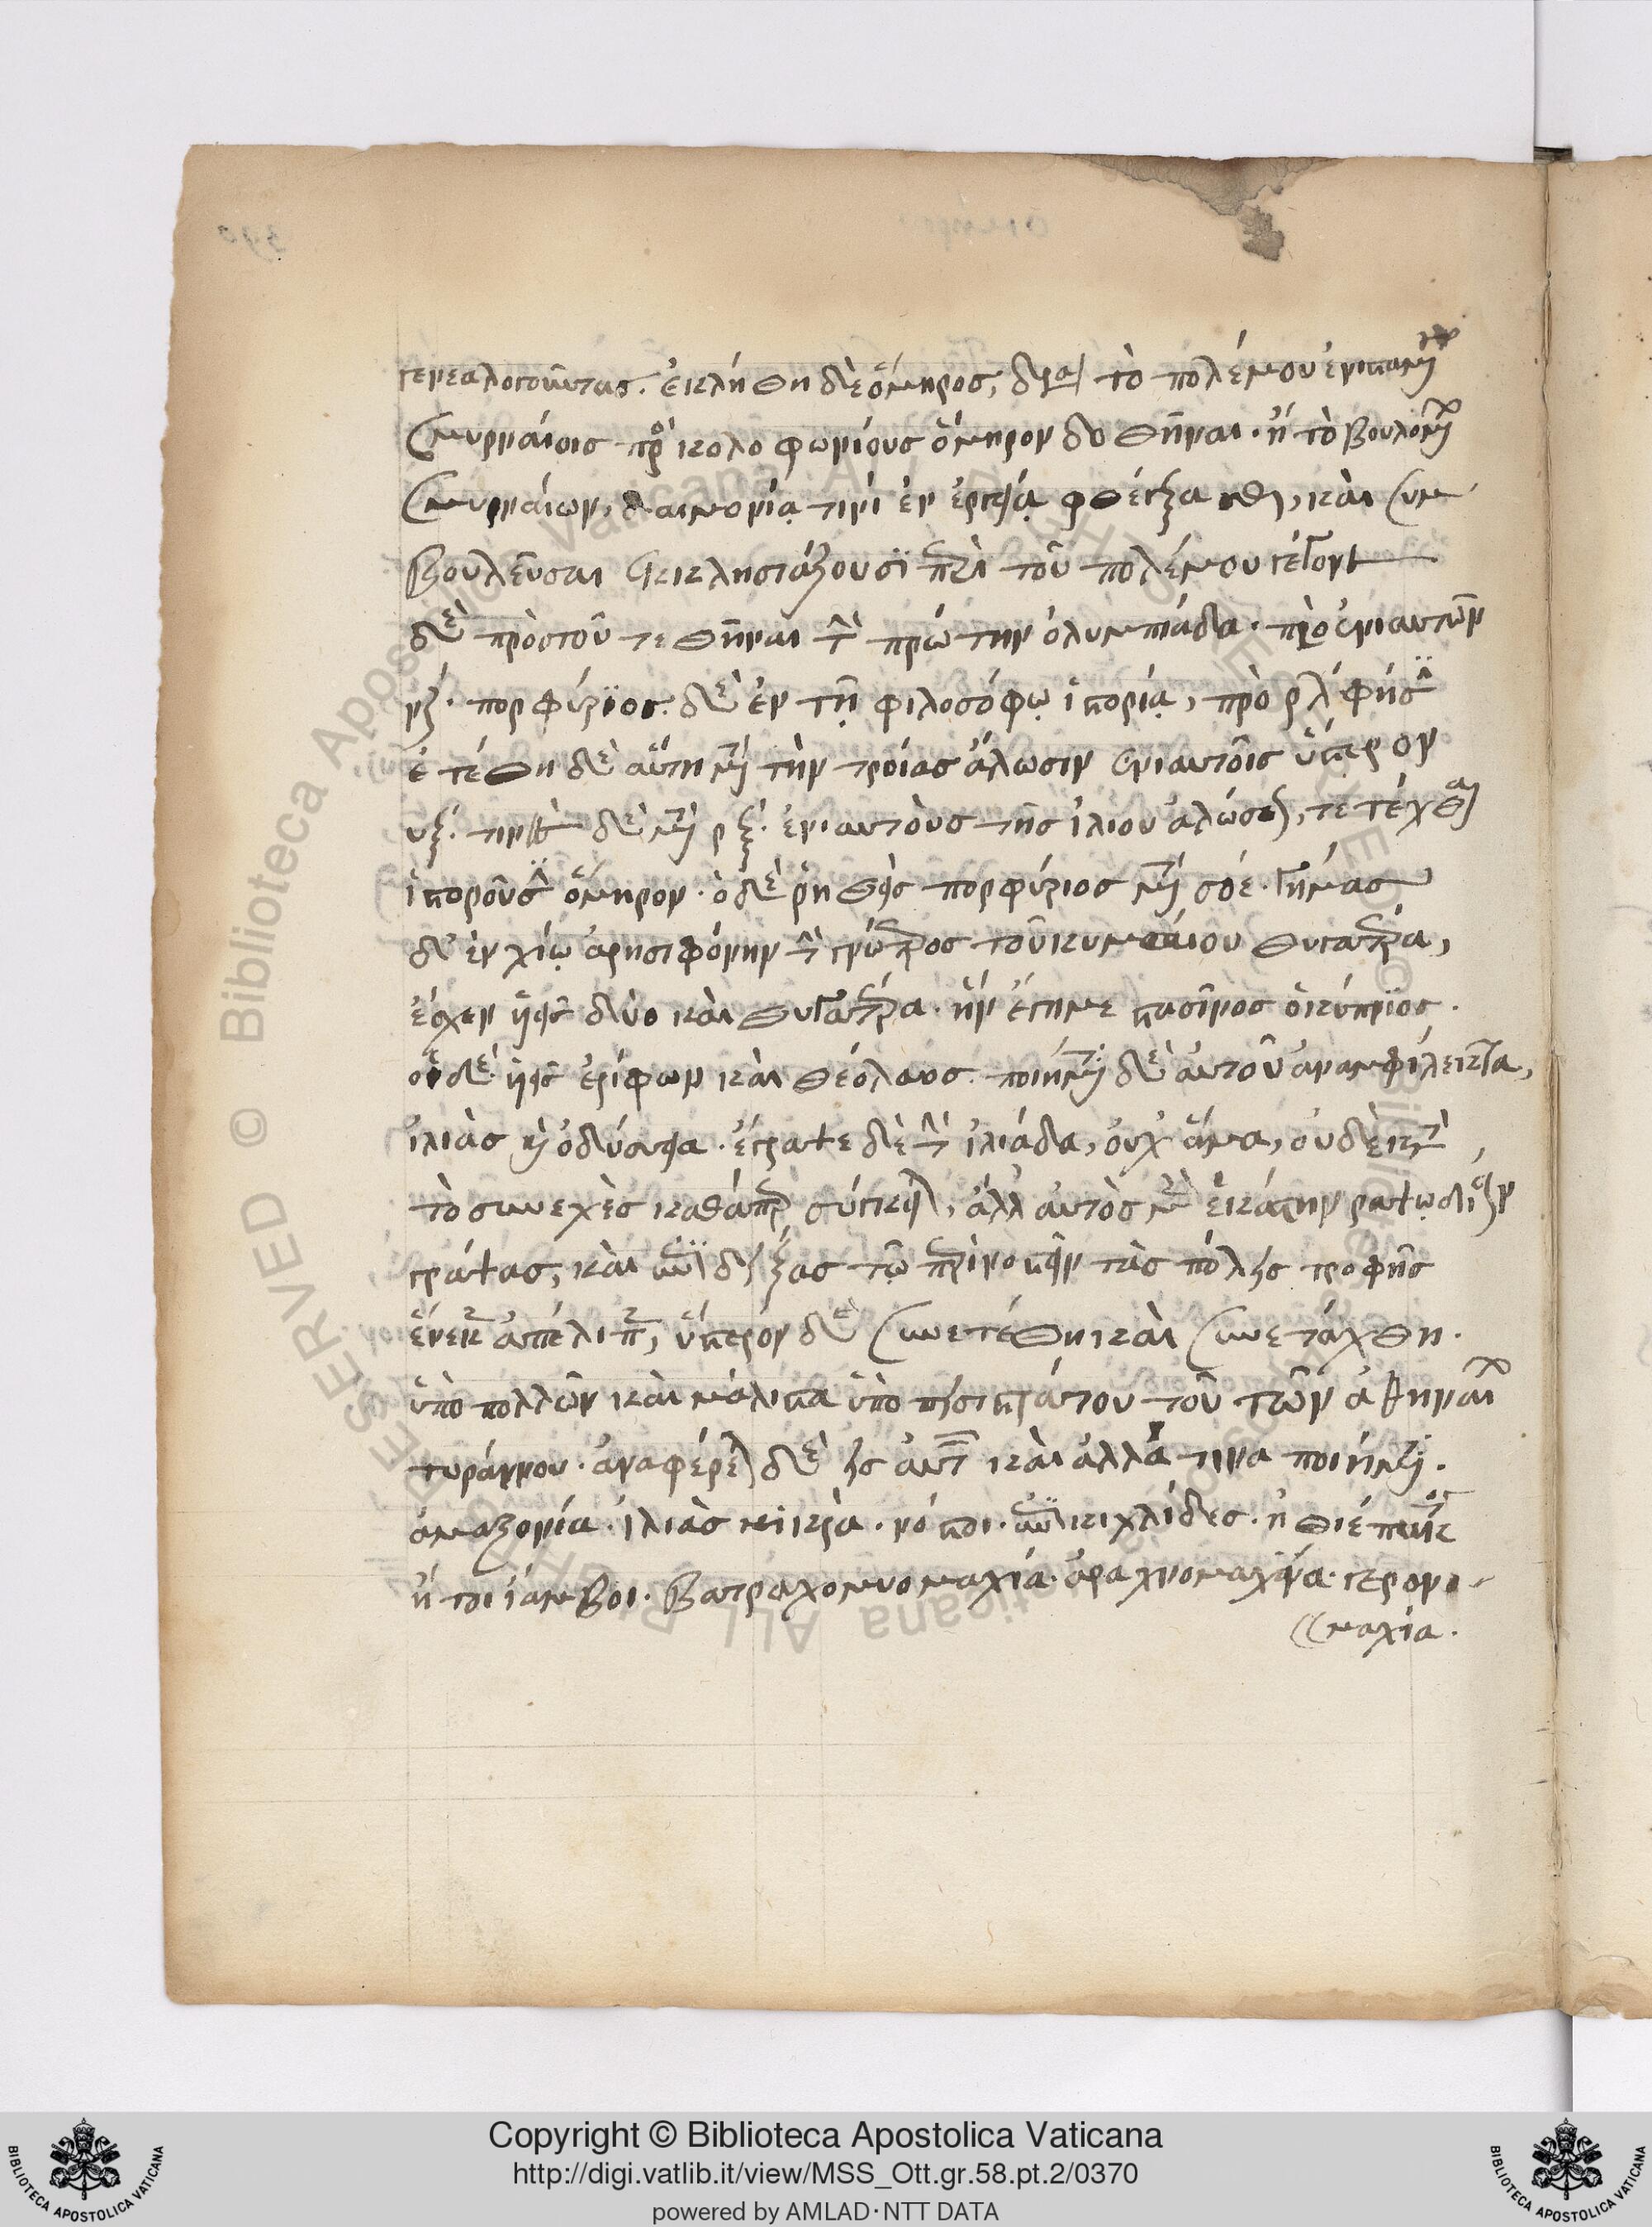 γενεαλογοῦντας. ἐκλήθη δὲ ὅμηρος, διὰ τὸ πολέμου ἐνισταμένου
σμυρναίοις πρὸς κολοφωνίους ὅμηρον δοθῆναι. ἢ τὸ βουλομένων
σμυρναίων, δαιμονίᾳ τινὶ ἐνεργείᾳ φθέγξασθαι, καὶ συμ
βουλεῦσαι ἐκκλησιάζουσι περὶ τοῦ πολέμου γέγονε
δὲ πρὸς τοῦ τεθῆναι τὴν πρώτην ὀλυμπιάδα. πρὸ ἐνιαυτῶν
νζ. πορφύριος δὲ ἐν τῇ φιλοσόφῳ ἱστορίᾳ, πρὸ ρλβ φησίν
ἐτέθη δὲ αὕτη μετὰ τὴν τροίας ἅλωσιν ἐνιαυτοῖς ὕστερον
υξ. τινὲς δὲ μετὰ ρξ. ἐνιαυτοὺς τῆς ἰλίου ἁλώσεως, τετέχθαι
ἱστοροῦσιν ὅμηρον. ὁ δὲ ῥηθεὶς πορφύριος μετὰ σοε. γήμας
δ' ἐν χίῳ ἀρησιφόνην τὴν γνώτορος τοῦ κυμαίου θυγατέρα,
ἔσχεν υἱεῖς δύο καὶ θυγατέρα. ἣν ἔγημε στασῖνος ὁ κύπριος.
οἱ δὲ υἱεῖς ἐρίφων καὶ θεόλαος. ποιήματα δὲ αὐτοῦ ἀναμφίλεκτα,
ἰλιὰς καὶ ὀδύσσεια. ἔγραψε δὲ τὴν ἰλιάδα, οὐχ ἅμα, οὐδὲ κατὰ
τὸ συνεχὲς καθάπερ σύγκειται, ἀλλ' αὐτὸς μὲν ἑκάστην ραψῳδίαν
γράψας, καὶ ἐπιδείξας τῷ περινοστεῖν τὰς πόλεις τροφῆς
ἕνεκεν ἀπέλιπεν, ὕστερον δὲ συνετέθη καὶ συνετάχθη.
ὑπὸ πολλῶν καὶ μάλιστα ὑπὸ πεισιστράτου τοῦ τῶν ἀθηναίων
τυράννου. ἀναφέρεται δὲ εἰς αὐτὸν καὶ ἄλλα τινα ποιήματα.
ἀμαζονία. ἰλιὰς μικρὰ. νόστοι. ἐπικιχλίδες. ἠθιέπακτος
ἤτοι ἴαμβοι. βατραχομυομαχία. ἀραχνομαχία. γερανο
μαχία.
Copyright © Biblioteca Apostolica Vaticana
http://digi.vatlib.it/view/MSS_Ott.gr.58.pt.2/0370
powered by AMLAD·NTT DATA